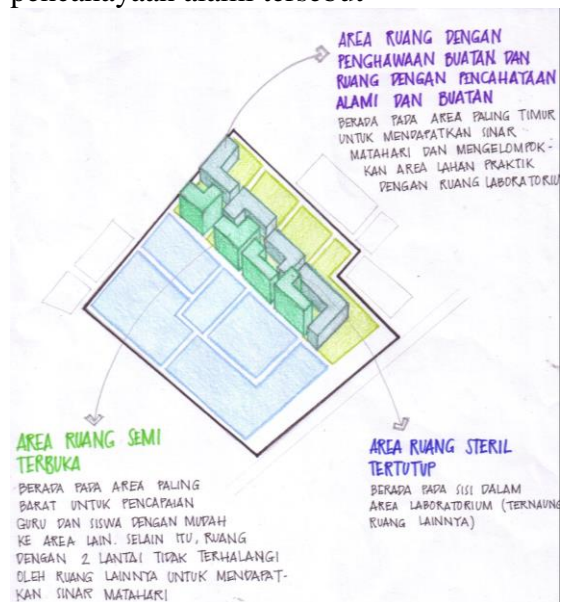 AREA RUANG DENGAN
PENGHAWAAN BUATAN DAN
RUANG DENGAN PENCAHAYAAN
ALAMI DAN BUATAN
BERADA PADA AREA PALING TIMUR
UNTUK MENDAPATKAN SINAR
MATAHARI DAN MENGELOMPOK-
KAN AREA LAHAN PRAKTIK
DENGAN RUANG LABORATORIU
AREA RUANG SEMI
TERBUKA
BERADA PADA AREA PALING
BARAT UNTUK PENCAPAIAN
GURU DAN SISWA DENGAN MUDAH
KE AREA LAIN. SELAIN ITU, RUANG
DENGAN 2 LANTAI TIDAK TERHALANGI
OLEH RUANG LAINNYA UNTUK MENDAPAT-
KAN SINAR MATAHARI
AREA RUANG STERIL
TERTUTUP
BERADA PADA SISI DALAM
AREA LABORATORIUM (TERNAUNG
RUANG LAINNYA)